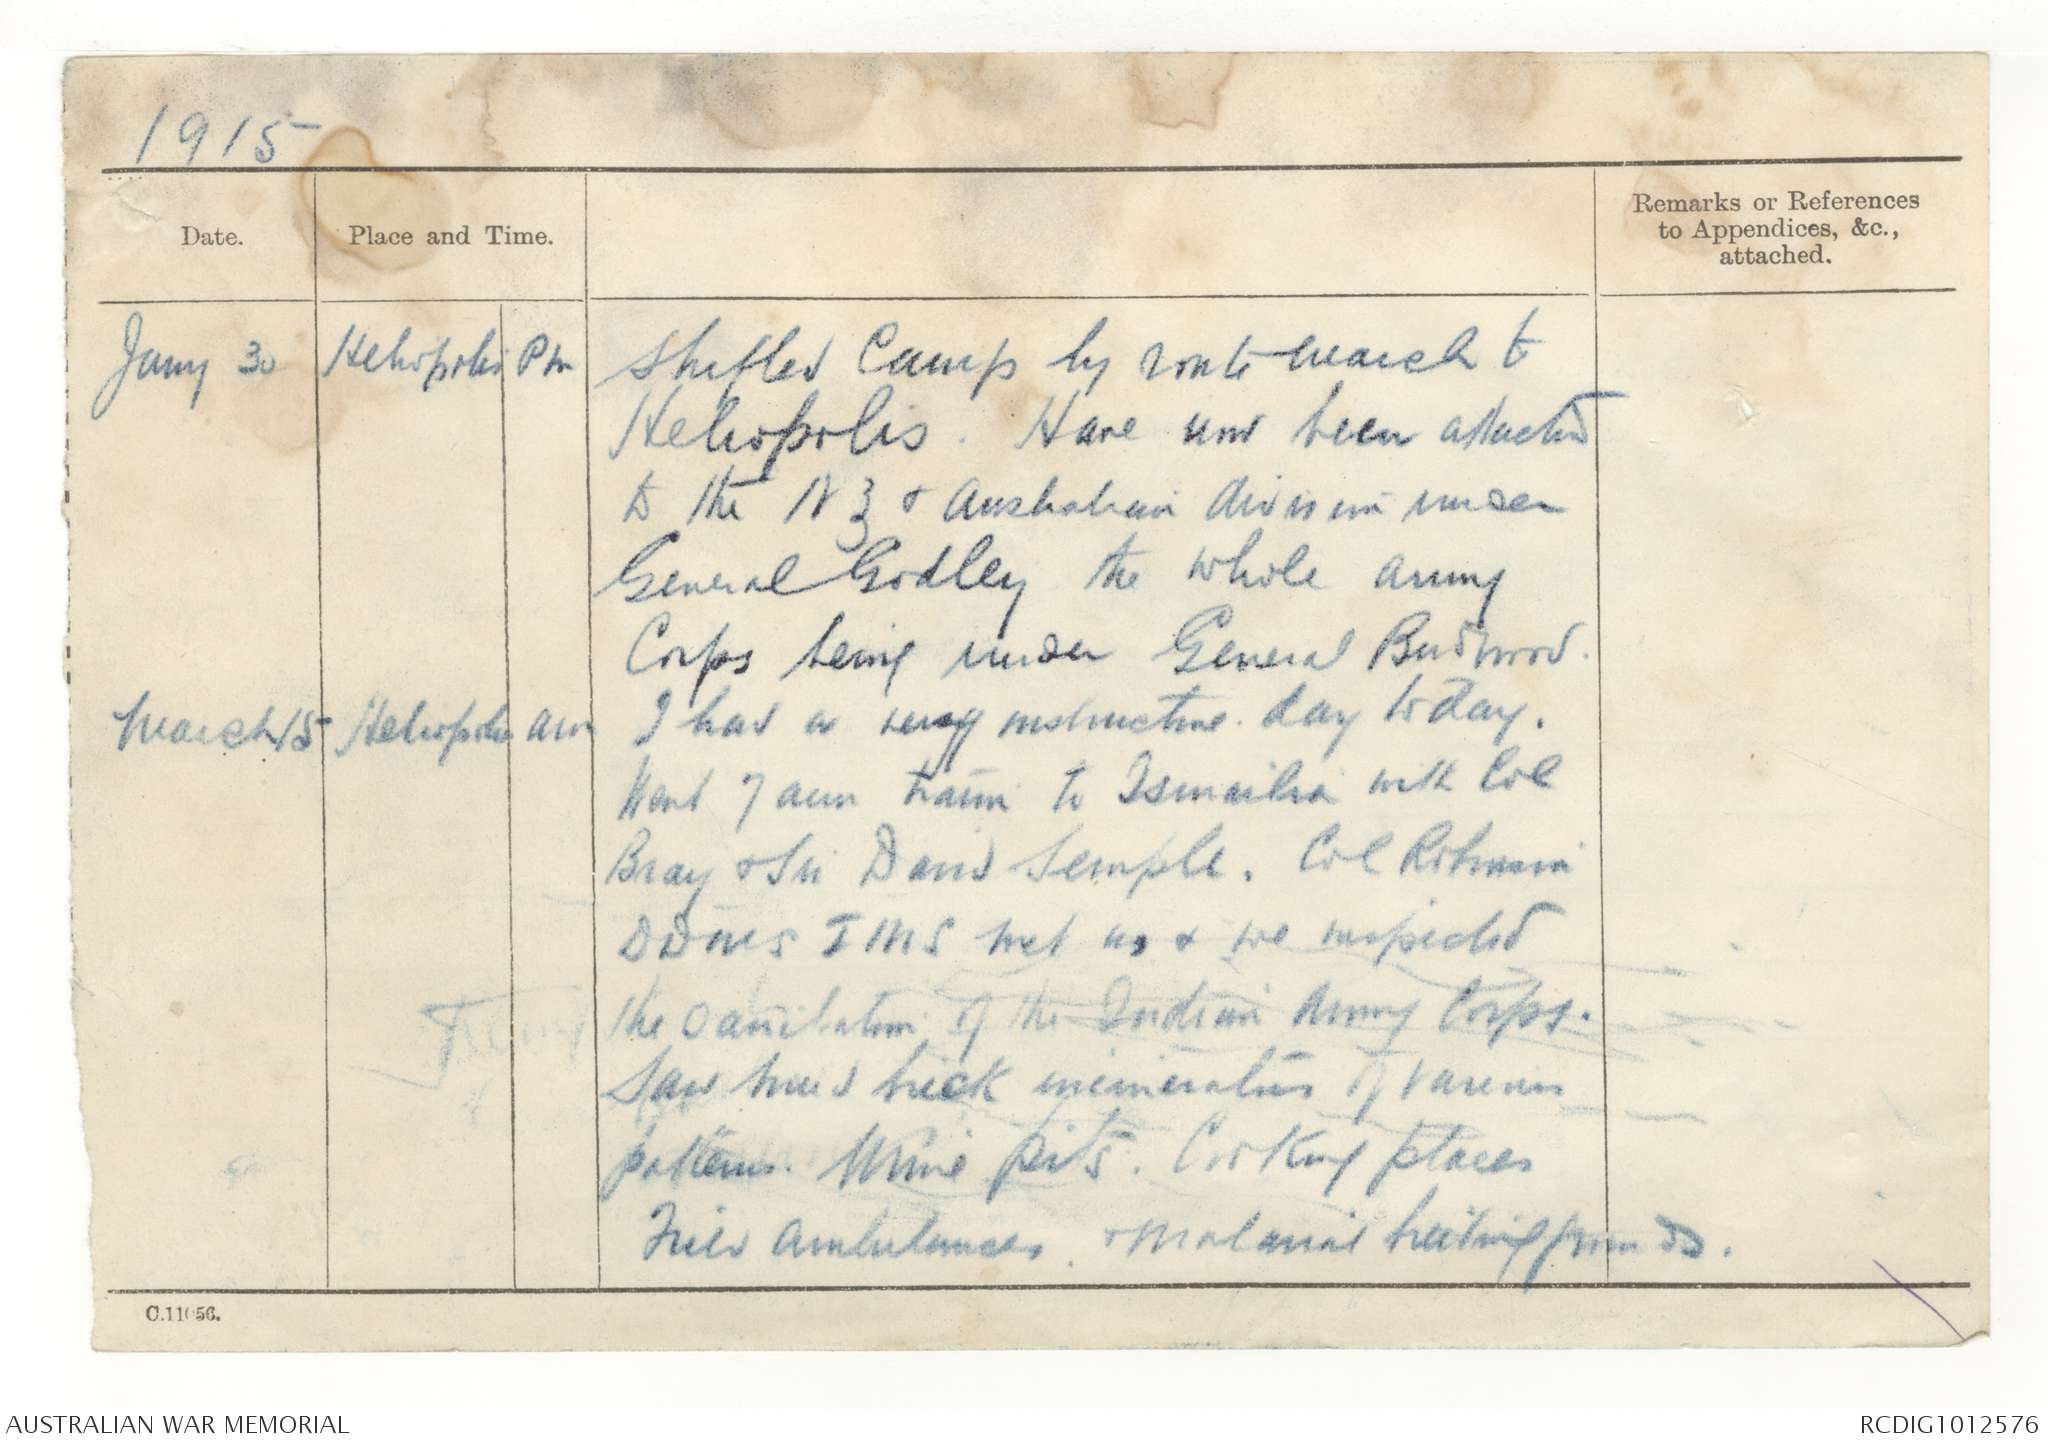 1915
Date.
Place and Time.
Remarks or References
to Appendices, &c.,
attached.
Jany 30 Heliopolis Pm Shifted Camp by route march to
Heliopolis. Have now been attached
to the N Z & Australian division under
General Godley the whole army
Corps being under General Birdwood.
March 15 Heliopolis am I had a very instructive day today.
Went 7 am train to Ismailia with Col
Bray & Sir David Semple. Col Robinson
DDMS IMS met us & we inspected
the sanitation of the Indian Army Corps.
Saw mud brick incinerators of various
patterns. Urine pits. Cooking places
Field Ambulances. & Malarial breeding grounds.
C.11056.
AUSTRALIAN WAR MEMORIAL
RCDIG1012576